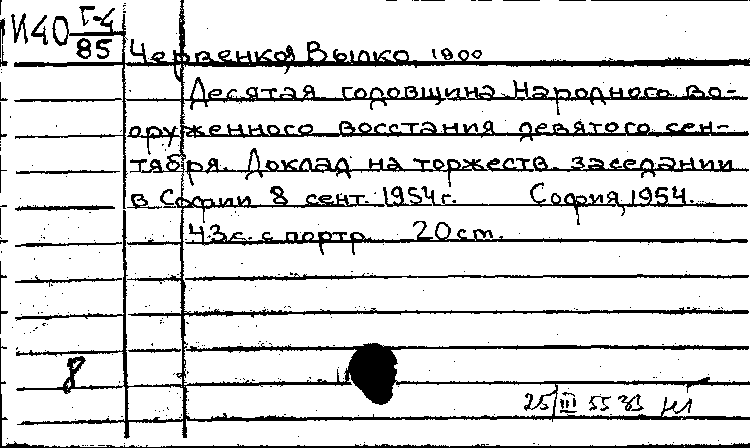 И40 Г-4/85
Червенков, Вылко, 1900
Десятая годовщина Народного во-
оруженного восстания девятого сен-
тября. Доклад на торжеств. заседании
в Софии 8 сент. 1954г. София, 1954.
43с. с портр. 20см.
8
25/III 55